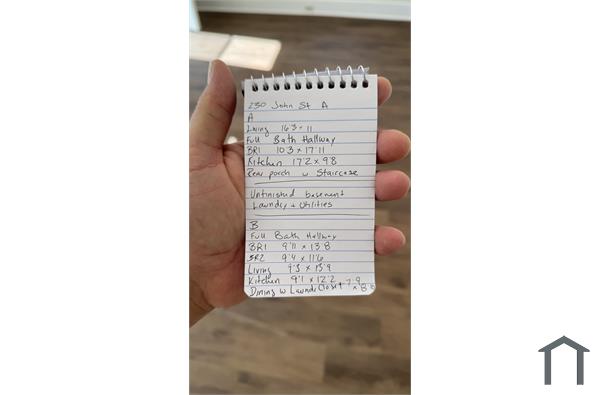 230 John St A
A
Living 16'3 x 11
Full Bath Hallway
BR1 10'3 x 17'11
Kitchen 17'2 x 9'8
Rear porch w Staircase
Unfinished basement
Laundry + Utilities
B
Full Bath Hallway
BR1 9'11 x 13'8
BR2 9'4 x 11'6
Living 9'3 x 13'9
Kitchen 9'1 x 12'2
Dining w Laundr Closet 7'9 x